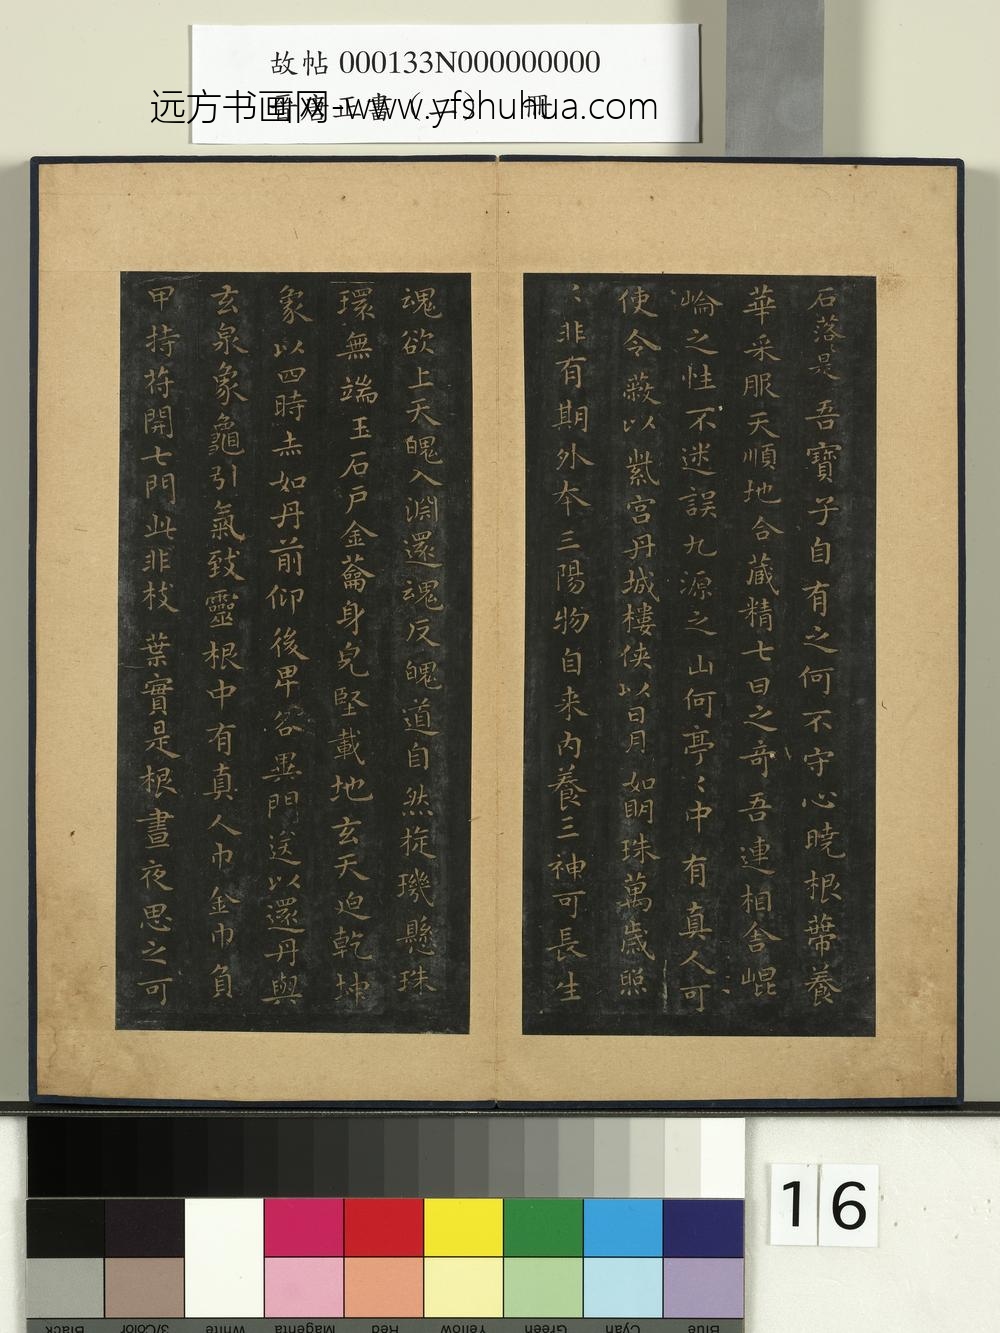 故帖 000133N000000000
远方书画网-www.yfshuhua.com
石落是吾寶子自有之何不守心曉根蔕養
華采服天順地合藏精七日之奇吾連相舍崐
崘之性不迷誤九源之山何亭〻中有真人可
使令蔽以紫宫丹城樓侠以日月如明珠萬歲照
〻非有期外夲三陽物自来内養三神可長生
魂欲上天魄入淵還魂反魄道自然㨁璣懸珠
環無端玉石戶金蘥身皃堅載地玄天迫乾坤
象以四時赤如丹前仰後卑各異門送以還丹與
玄泉象龜引氣致靈根中有真人巾金巾負
甲持苻開七門此非枝葉實是根晝夜思之可
16
Black
3/Color
White
Magenta
Red
Yellow
Green
Cyan
Blue